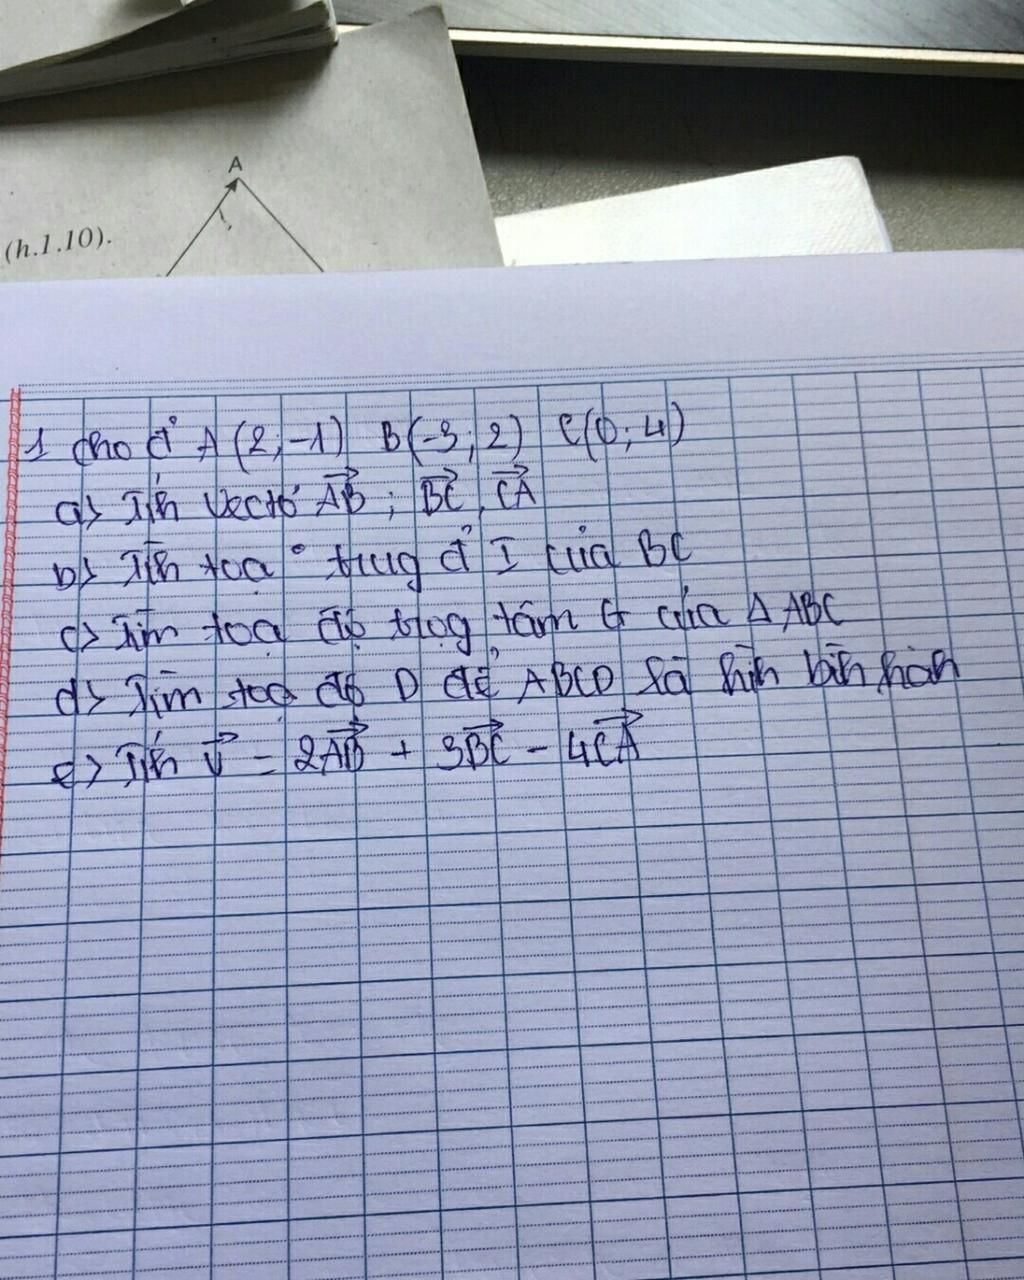 A
(h.1.10).
1 cho đ' A(2;-1) B(-3;2) C(0;4)
a> Tíh Vectơ AB⃗; BC⃗, CA⃗
b> Tīh tọa ° trug đ' I của BC
c> Tìm tọa độ trọg tâm G của Δ ABC
d> Tìm tọa độ D để ABCD là hīh bīh hàh
e> Tíh v⃗ = 2AB⃗ + 3BC⃗ - 4CA⃗